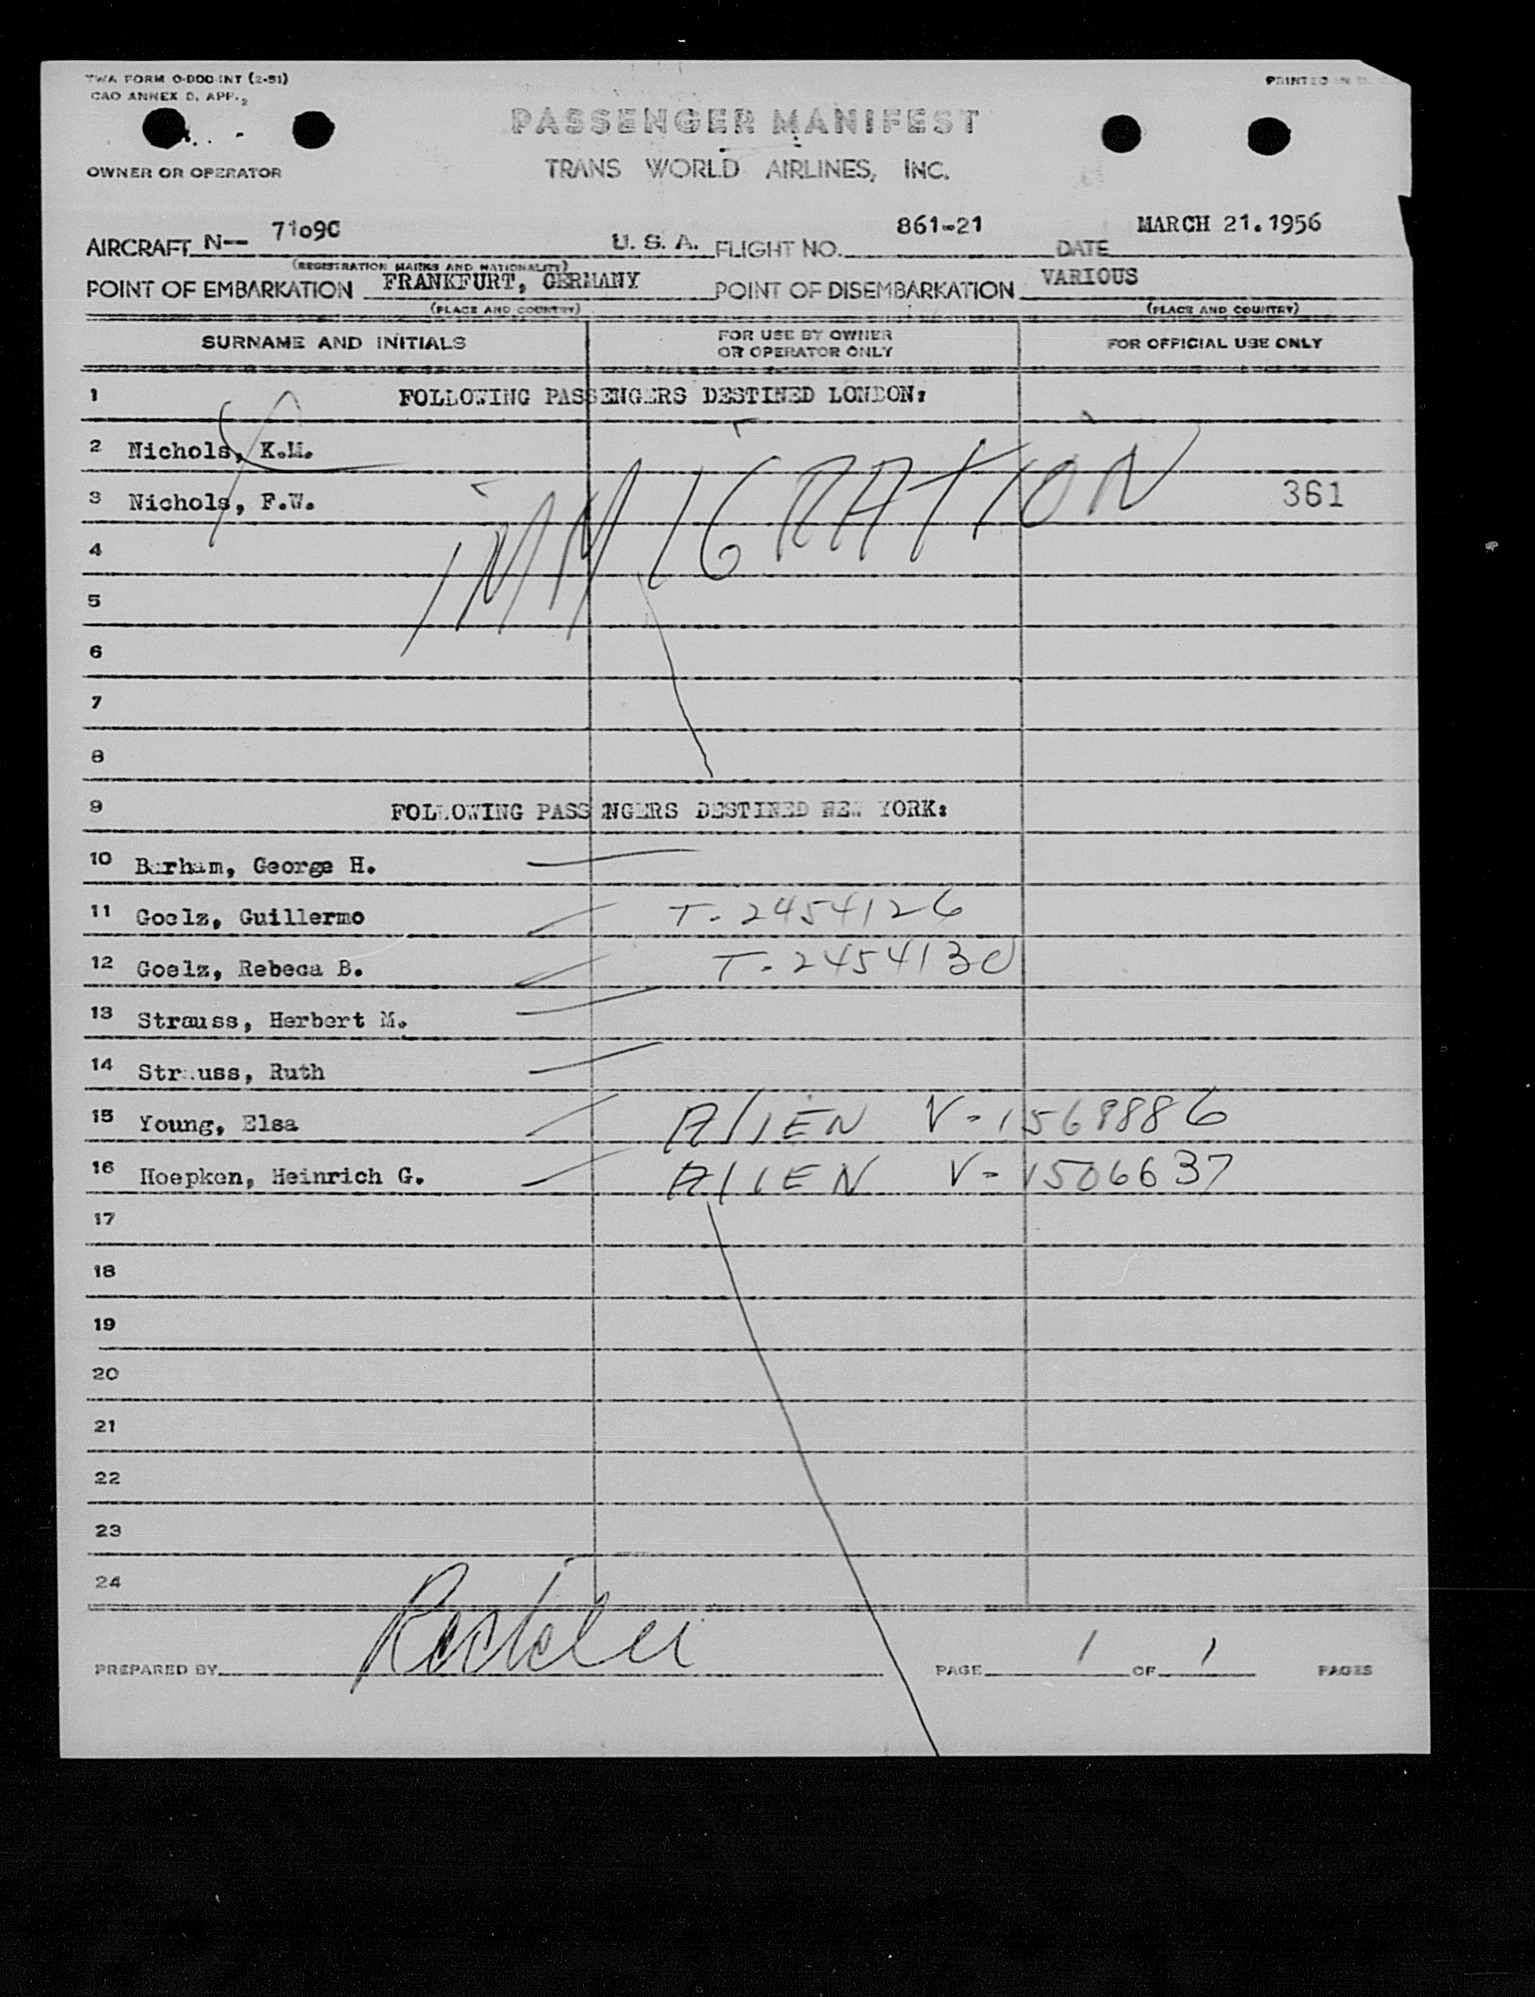 TWA FORM O-DOO-INT (2-51)
CAO ANNEX D. APP. 2
PRINTED IN
PASSENGER MANIFEST
TRANS WORLD AIRLINES, INC.
OWNER OR OPERATOR
AIRCRAFT N-- 7109C U. S. A. FLIGHT NO. 861-21 DATE MARCH 21.1956
(REGISTRATION MARKS AND NATIONALITY)
POINT OF EMBARKATION FRANKFURT, GERMANY POINT OF DISEMBARKATION VARIOUS
(PLACE AND COUNTRY) (PLACE AND COUNTRY)
SURNAME AND INITIALS FOR USE BY OWNER OR OPERATOR ONLY FOR OFFICIAL USE ONLY
1 FOLLOWING PASSENGERS DESTINED LONDON:
2 Nichols, K.M.
IMMIGRATION
3 Nichols, F.W. 361
4
5
6
7
8
9 FOLLOWING PASSENGERS DESTINED NEW YORK:
10 Barham, George H.
11 Goelz, Guillermo T-2454126
12 Goelz, Rebeca B. T-2454130
13 Strauss, Herbert M.
14 Strauss, Ruth
15 Young, Elsa ALIEN V-1569886
16 Hoepken, Heinrich G. ALIEN V-1506637
17
18
19
20
21
22
23
24
PREPARED BY PAGE 1 OF 1 PAGES